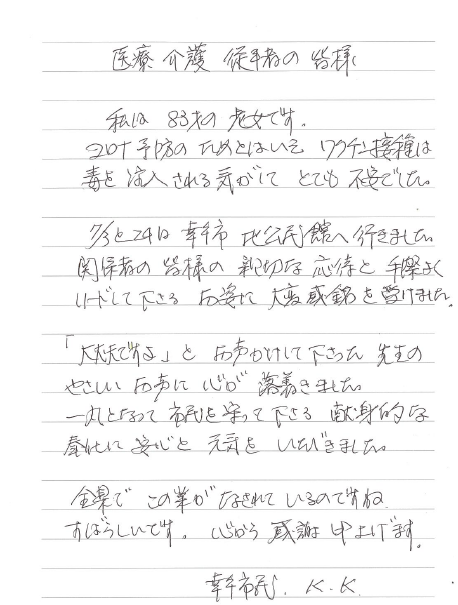 医療 介護 従事者の 皆様
私は 83才の 老女です。
コロナ予防の ためとはいえ ワクチン接種は
毒を 注入される気がして とても 不安でした。
7/3と24日 幸手市 北公民館へ行きました。
関係者の 皆様の 親切な 応待と 手際よく
リードして下さる お姿に 大変感銘を受けました。
「大丈夫ですよ」と お声かけして下さった 先生の
やさしい お声に 心が 落着きました。
一丸となって 市民を守って下さる 献身的な
に 安心と 元気を いただきました。
全県で この業がなされて いるのですね
すばらしいです。 心から 感謝 申上げます。
幸手市民 K.K